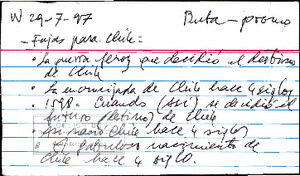 W 29-7-97 Ruta - promo
- Fajas para Chile:
• La guerra feroz que decidió el destino
de Chile
• La encrucijada de Chile hace 4 siglos
• 1598. Cuando (así) se decidió el
futuro (destino) de Chile
• Así nació Chile hace 4 siglos
• El fabuloso nacimiento de
Chile hace 4 siglos.